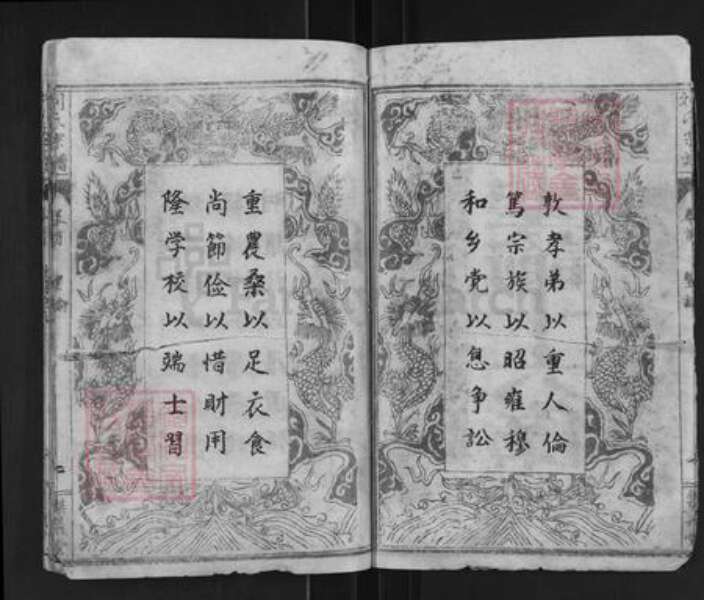 敦孝弟以重人倫
篤宗族以昭雍穆
和乡党以息争訟
重農桑以足衣食
尚節俭以惜財用
隆学校以端士習